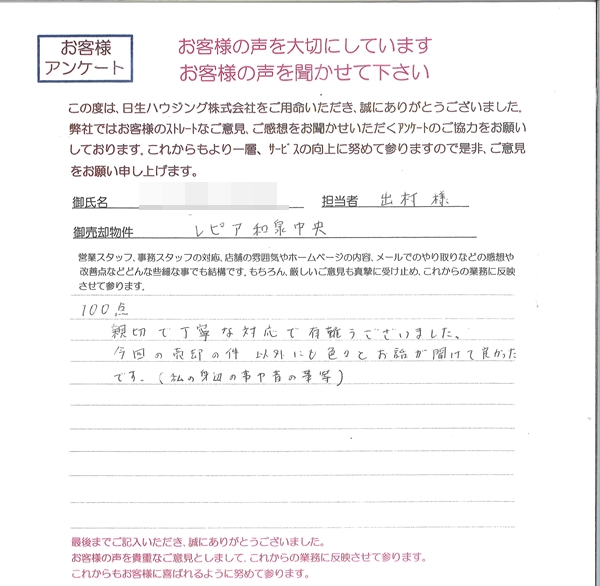 お客様
アンケート
お客様の声を大切にしています
お客様の声を聞かせて下さい
この度は、日生ハウジング株式会社をご用命いただき、誠にありがとうございました。
弊社ではお客様のストレートなご意見、ご感想をお聞かせいただくアンケートのご協力をお願い
しております。これからもより一層、サービスの向上に努めて参りますので是非、ご意見
をお願い申し上げます。
御氏名 担当者 出村 様
御売却物件 レピア和泉中央
営業スタッフ、事務スタッフの対応、店舗の雰囲気やホームページの内容、メールでのやり取りなどの感想や
改善点などどんな些細な事でも結構です。もちろん、厳しいご意見も真摯に受け止め、これからの業務に反映
させて参ります。
100点
親切で丁寧な対応で有難うございました。
今回の売却の件 以外にも色々とお話が聞けて良かった
です。(私の身辺の事や昔の事等)
最後までご記入いただき、誠にありがとうございました。
お客様の声を貴重なご意見としまして、これからの業務に反映させて参ります。
これからもお客様に喜ばれるように努めて参ります。